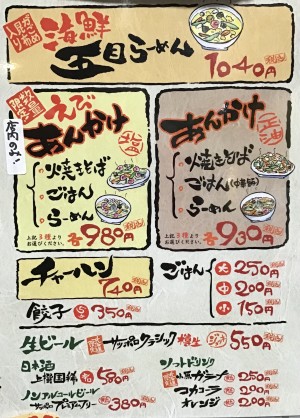 海鮮
五目らーめん
1040円
数量限定
えび
あんかけ
塩
店内のみ!
焼きそば
ごはん
らーめん
上記3種より
お選びください。
各980円
あんかけ
正油
焼きそば
ごはん(中華飯)
らーめん
上記3種より
お選びください。
各930円
チャーハン
740円
餃子 5 350円
ごはん
大 250円
中 200円
小 150円
生ビール
サッポロクラシック樽生
550円
日本酒
上撰国稀 580円
ノンアルコールビール
サッポロプレミアムアルコールフリー 380円
ソフトドリンク
小原ガラナ 250円
コカコーラ 200円
オレンジ 200円